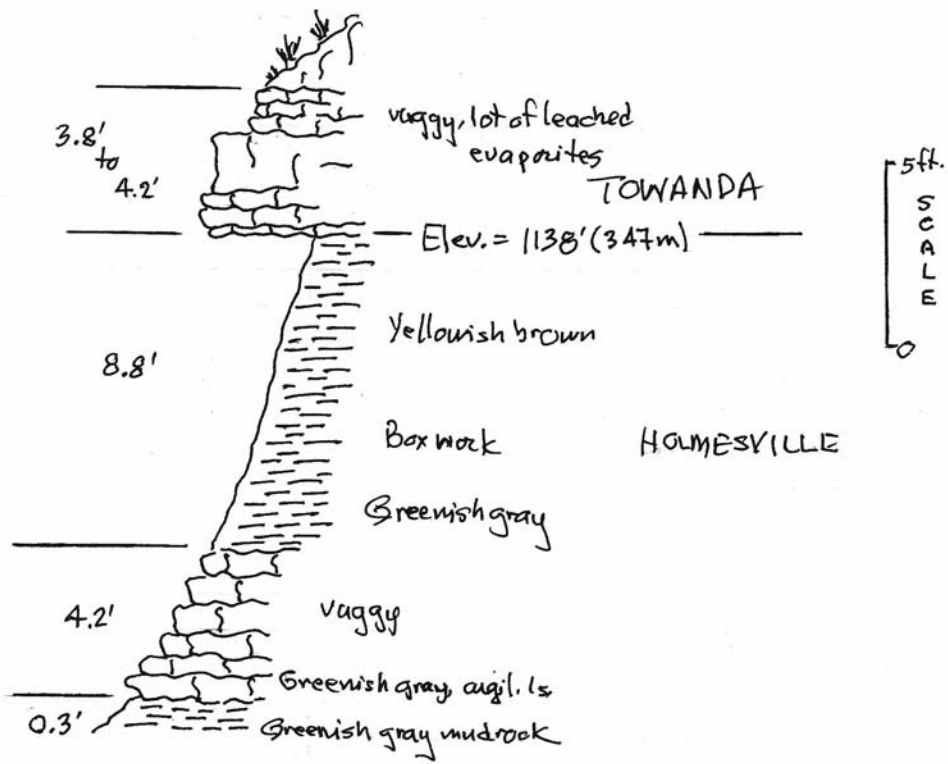 3.8'
to
4.2'
vuggy, lot of leached
evaporites
TOWANDA
Elev. = 1138' (347m)
5ft.
SCALE
0
8.8'
Yellowish brown
Boxwork
HOLMESVILLE
Greenish gray
4.2'
vuggy
Greenish gray, argil. ls.
0.3'
Greenish gray mudrock